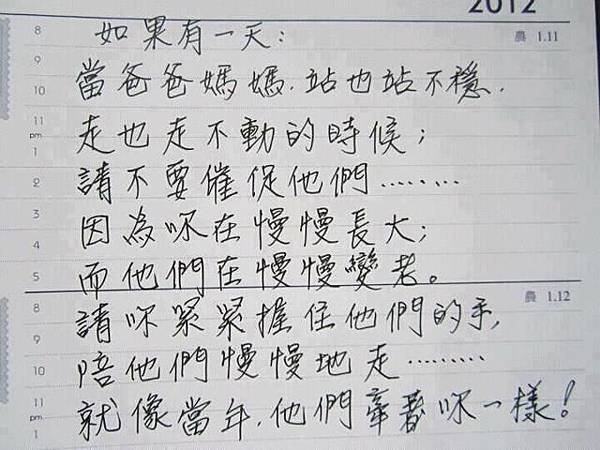 2012
農 1.11
8
如果有一天:
9
當爸爸媽媽.站也站不穩.
10
11
走也走不動的時候;
pm
1
2
請不要催促他們........
3
因為你在慢慢長大;
4
5
而他們在慢慢變老。
8
農 1.12
請你緊緊握住他們的手,
9
10
陪他們慢慢地走.........
11
pm
就像當年.他們牽著你一樣!
1